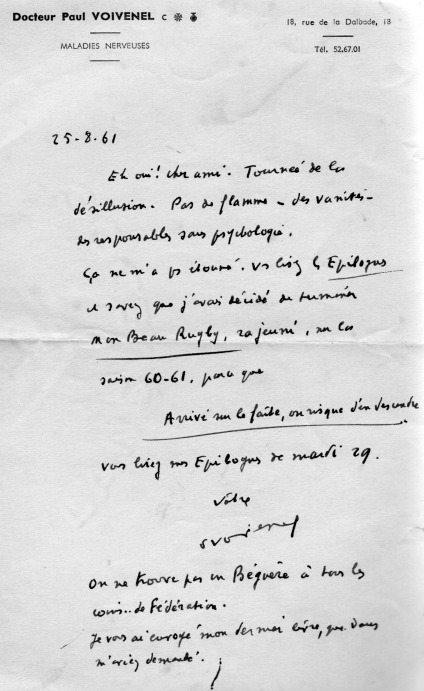 Docteur Paul VOIVENEL C
MALADIES NERVEUSES
18, rue de la Dalbade, 18
Tél. 52.67.01
25-8-61
Eh oui! cher ami. Tournée de la
désillusion. Pas de flamme - des vanités -
des responsables sans psychologie.
Ça ne m'a ps étonné. Vs lisez ls Epilogues
et savez que j'avais décidé de terminer
mon Beau Rugby, rajeuni, sur la
saison 60-61, parce que
Arrivé sur le faîte, on risque d'en descendre.
Vous lirez mes Epilogues de mardi 29.
Votre
Voivenel
On ne trouve pas un Béguère à tous les
coins.. de Fédération.
Je vous ai envoyé mon dernier livre, que vous
m'aviez demandé.